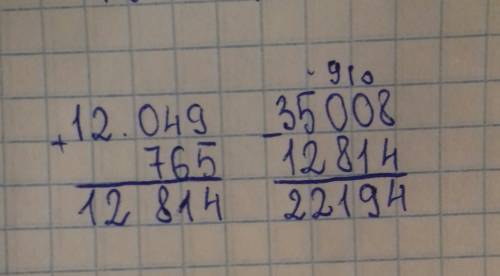 12.049
+
765
12 814
· 910
35008
-
12814
22194